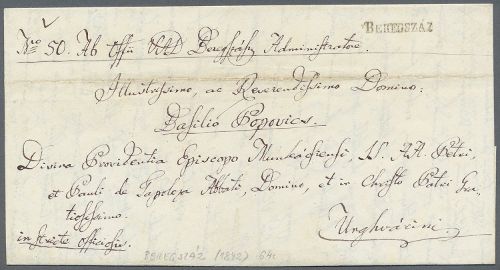 BEREGSZÁZ
Nro 50. Ab Offii VAD Beregszász Administratore.
Illustrissimo, ac Reverendissimo Domino:
Basilio Popovics.
Divina Providentia Episcopo Munkácsiensi, SS. AA. Petri,
et Pauli de Tapolcza Abbati, Domino, et in Christo Patri Gra
tiosissimo.
in stricte officiosis.
Unghvárini
BEREGSZÁZ (1842) 64.